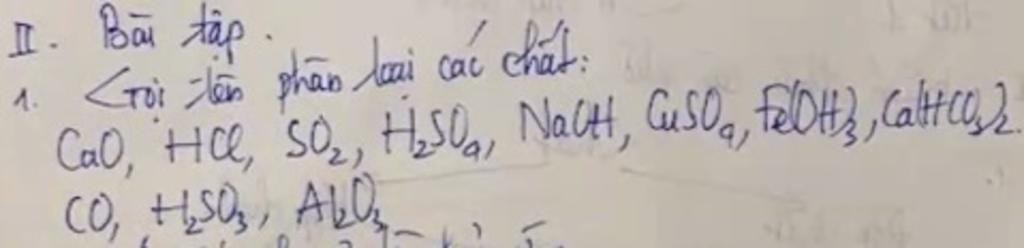 II. Bài tập.
1. Gọi tên phân loại các chất:
CaO, HCl, SO₂, H₂SO₄, NaOH, CuSO₄, Fe(OH)₃, Ca(HCO₃)₂.
CO, H₂SO₃, Al₂O₃